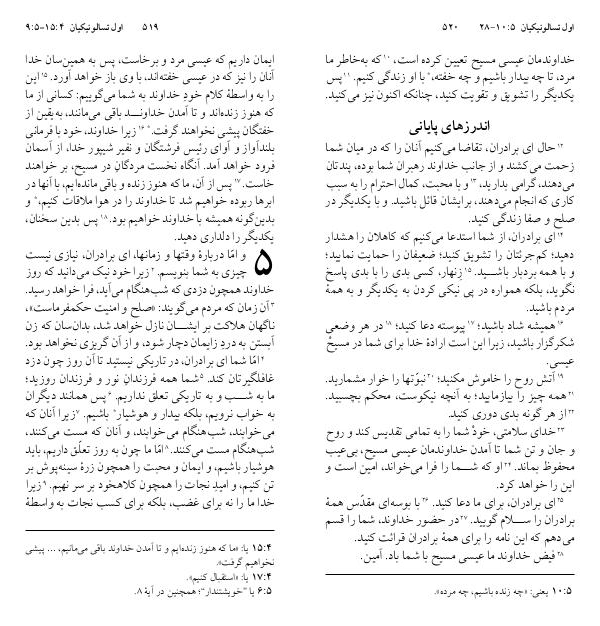 اول تسالونیکیان ۱۵:۴-۹:۵
۵۱۹
ایمان داریم که عیسی مرد و برخاست، پس به همین‌سان خدا
آنان را نیز که در عیسی خفته‌اند، با وی باز خواهد آورد. ۱۵این
را به واسطهٔ کلام خودِ خداوند به شما می‌گوییم: کسانی از ما
که هنوز زنده‌اند و تا آمدن خداوند باقی می‌مانند، به‌یقین از
خفتگان پیشی نخواهند گرفت.* ۱۶زیرا خداوند، خود با فرمانی
بلندآواز و آوای رئیس فرشتگان و نفیر شیپور خدا، از آسمان
فرود خواهد آمد. آنگاه نخست مردگانِ در مسیح، بر خواهند
خاست. ۱۷پس از آن، ما که هنوز زنده و باقی مانده‌ایم، با آنها در
ابرها ربوده خواهیم شد تا خداوند را در هوا ملاقات کنیم،* و
بدین‌گونه همیشه با خداوند خواهیم بود. ۱۸پس بدین سخنان،
یکدیگر را دلداری دهید.
۵ و امّا دربارهٔ وقتها و زمانها، ای برادران، نیازی نیست
چیزی به شما بنویسم. ۲زیرا خود نیک می‌دانید که روز
خداوند همچون دزدی که شب‌هنگام می‌آید، فرا خواهد رسید.
۳آن زمان که مردم می‌گویند: «صلح و امنیت حکمفرماست»،
ناگهان هلاکت بر ایشان نازل خواهد شد، بدان‌سان که زن
آبستن به دردِ زایمان دچار شود، و از آن گریزی نخواهد بود.
۴امّا شما ای برادران، در تاریکی نیستید تا آن روز چون دزد
غافلگیرتان کند. ۵شما همه فرزندانِ نور و فرزندان روزید؛
ما به شب و به تاریکی تعلق نداریم. ۶پس همانند دیگران
به خواب نرویم، بلکه بیدار و هوشیار* باشیم. ۷زیرا آنان که
می‌خوابند، شب‌هنگام می‌خوابند، و آنان که مست می‌کنند،
شب‌هنگام مست می‌کنند. ۸امّا ما چون به روز تعلّق داریم، باید
هوشیار باشیم، و ایمان و محبت را همچون زرهٔ سینه‌پوش بر
تن کنیم، و امیدِ نجات را همچون کلاهخود بر سر نهیم. ۹زیرا
خدا ما را نه برای غضب، بلکه برای کسب نجات به واسطهٔ
۱۵:۴ یا: «ما که هنوز زنده‌ایم و تا آمدن خداوند باقی می‌مانیم، ... پیشی
نخواهیم گرفت».
۱۷:۴ یا: «استقبال کنیم».
۶:۵ یا ”خویشتندار“؛ همچنین در آیهٔ ۸.
اول تسالونیکیان ۱۰:۵-۲۸
۵۲۰
خداوندمان عیسی مسیح تعیین کرده است، ۱۰که به‌خاطر ما
مرد، تا چه بیدار باشیم و چه خفته،* با او زندگی کنیم. ۱۱پس
یکدیگر را تشویق و تقویت کنید، چنانکه اکنون نیز می‌کنید.
اندرزهای پایانی
۱۲حال ای برادران، تقاضا می‌کنیم آنان را که در میان شما
زحمت می‌کشند و از جانب خداوند رهبران شما بوده، پندتان
می‌دهند، گرامی بدارید، ۱۳و با محبت، کمال احترام را به سبب
کاری که انجام می‌دهند، برایشان قائل باشید. و با یکدیگر در
صلح و صفا زندگی کنید.
۱۴ای برادران، از شما استدعا می‌کنیم که کاهلان را هشدار
دهید؛ کم‌جرئتان را تشویق کنید؛ ضعیفان را حمایت نمایید؛
و با همه بردبار باشید. ۱۵زنهار، کسی بدی را با بدی پاسخ
نگوید، بلکه همواره در پی نیکی کردن به یکدیگر و به همهٔ
مردم باشید.
۱۶همیشه شاد باشید؛ ۱۷پیوسته دعا کنید؛ ۱۸در هر وضعی
شکرگزار باشید، زیرا این است ارادهٔ خدا برای شما در مسیحْ
عیسی.
۱۹آتش روح را خاموش مکنید؛ ۲۰نبوّتها را خوار مشمارید.
۲۱همه چیز را بیازمایید؛ به آنچه نیکوست، محکم بچسبید.
۲۲از هر گونه بدی دوری کنید.
۲۳خدای سلامتی، خودْ شما را به تمامی تقدیس کند و روح
و جان و تن شما تا آمدن خداوندمان عیسی مسیح، بی‌عیب
محفوظ بماند. ۲۴او که شما را فرا می‌خواند، امین است و
این را خواهد کرد.
۲۵ای برادران، برای ما دعا کنید. ۲۶با بوسه‌ای مقدّس همهٔ
برادران را سلام گویید. ۲۷در حضور خداوند، شما را قسم
می‌دهم که این نامه را برای همهٔ برادران قرائت کنید.
۲۸فیض خداوند ما عیسی مسیح با شما باد. آمین.
۱۰:۵ یعنی: «چه زنده باشیم، چه مرده».